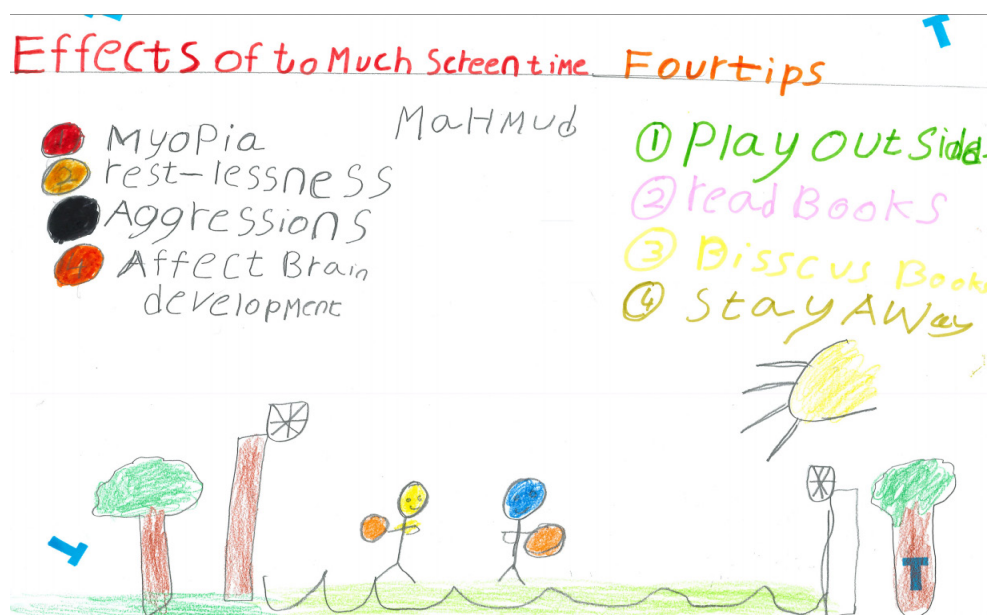 Effects of to Much Screen time Four tips
MaHMud
1 MyoPia
2 rest-lessness
Aggressions
Affect Brain
development
1 Play Out Side
2 read Books
3 Disscus Books
4 Stay AWay
T
T
T